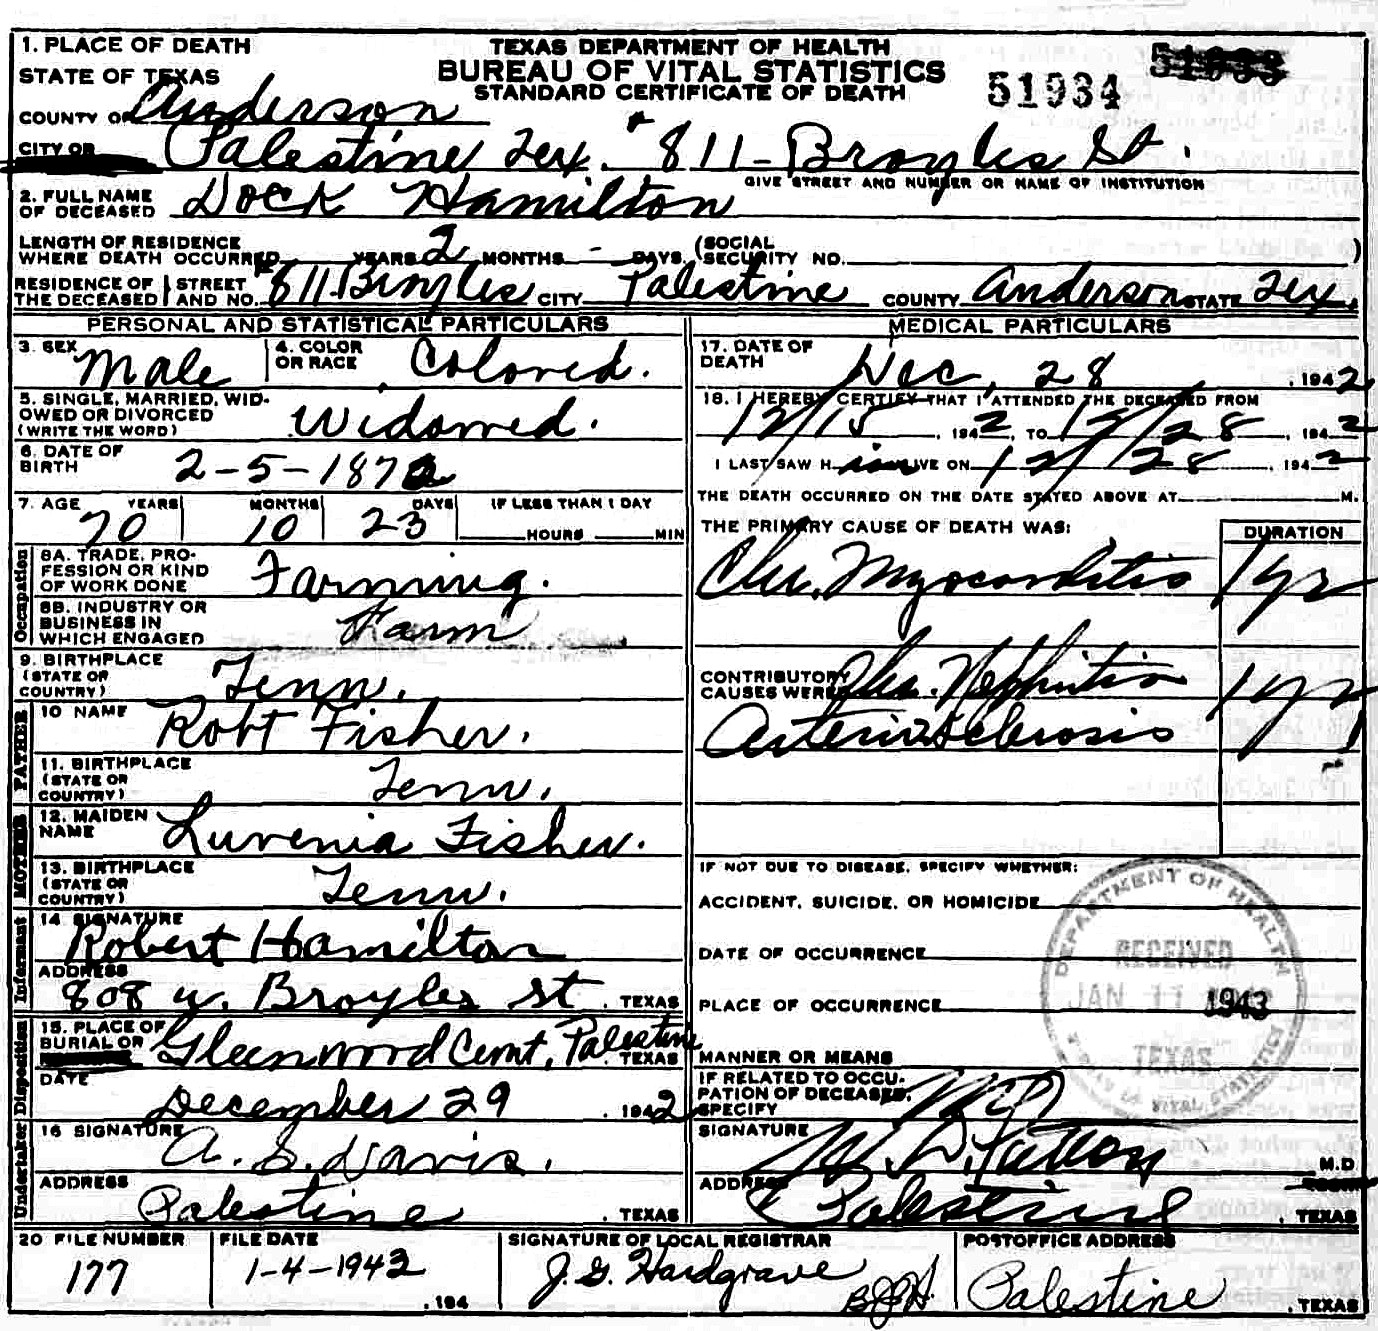 1. PLACE OF DEATH
STATE OF TEXAS
TEXAS DEPARTMENT OF HEALTH
BUREAU OF VITAL STATISTICS
STANDARD CERTIFICATE OF DEATH
51934
COUNTY OF Anderson
CITY OR Palestine Tex. # 811 - Broyles St.
GIVE STREET AND NUMBER OR NAME OF INSTITUTION
2. FULL NAME OF DECEASED Dock Hamilton
LENGTH OF RESIDENCE WHERE DEATH OCCURRED YEARS 2 MONTHS - DAYS (SOCIAL SECURITY NO. )
RESIDENCE OF THE DECEASED STREET AND NO. # 811 Broyles CITY Palestine COUNTY Anderson STATE Tex.
PERSONAL AND STATISTICAL PARTICULARS
3. SEX Male 4. COLOR OR RACE Colored.
5. SINGLE, MARRIED, WIDOWED OR DIVORCED (WRITE THE WORD) Widowed.
6. DATE OF BIRTH 2-5-1872
7. AGE YEARS 70 MONTHS 10 DAYS 23 IF LESS THAN 1 DAY HOURS MIN
Occupation
8A. TRADE, PROFESSION OR KIND OF WORK DONE Farming.
8B. INDUSTRY OR BUSINESS IN WHICH ENGAGED Farm
9. BIRTHPLACE (STATE OR COUNTRY) Tenn.
FATHER
10 NAME Robt Fisher.
11. BIRTHPLACE (STATE OR COUNTRY) Tenn.
MOTHER
12. MAIDEN NAME Luvenia Fisher.
13. BIRTHPLACE (STATE OR COUNTRY) Tenn.
Informant
14 SIGNATURE Robert Hamilton
ADDRESS 808 W. Broyles St. TEXAS
Disposition
15. PLACE OF BURIAL OR Gleenwood Cemt, Palestine. TEXAS
DATE December 29, 1942
Undertaker
16 SIGNATURE A. S. Davis.
ADDRESS Palestine. TEXAS
MEDICAL PARTICULARS
17. DATE OF DEATH Dec, 28, 1942
18. I HEREBY CERTIFY THAT I ATTENDED THE DECEASED FROM
12/15, 1942, TO 12/28, 1942
I LAST SAW HIM ALIVE ON 12/28, 1942
THE DEATH OCCURRED ON THE DATE STATED ABOVE AT M.
THE PRIMARY CAUSE OF DEATH WAS: DURATION
Chr. Myocarditis 1 yr
CONTRIBUTORY CAUSES WERE Chr. Nephritis 1 yr
Arteriosclerosis
IF NOT DUE TO DISEASE, SPECIFY WHETHER:
ACCIDENT, SUICIDE, OR HOMICIDE
DATE OF OCCURRENCE
PLACE OF OCCURRENCE
MANNER OR MEANS
DEPARTMENT OF HEALTH
RECEIVED
JAN 11 1943
TEXAS
VITAL STATISTICS
IF RELATED TO OCCUPATION OF DECEASED, SPECIFY
SIGNATURE M.D.
ADDRESS Palestine. TEXAS
20 FILE NUMBER 177
FILE DATE 1-4-1943, 194
SIGNATURE OF LOCAL REGISTRAR J. G. Hardgrave
POSTOFFICE ADDRESS Palestine. TEXAS